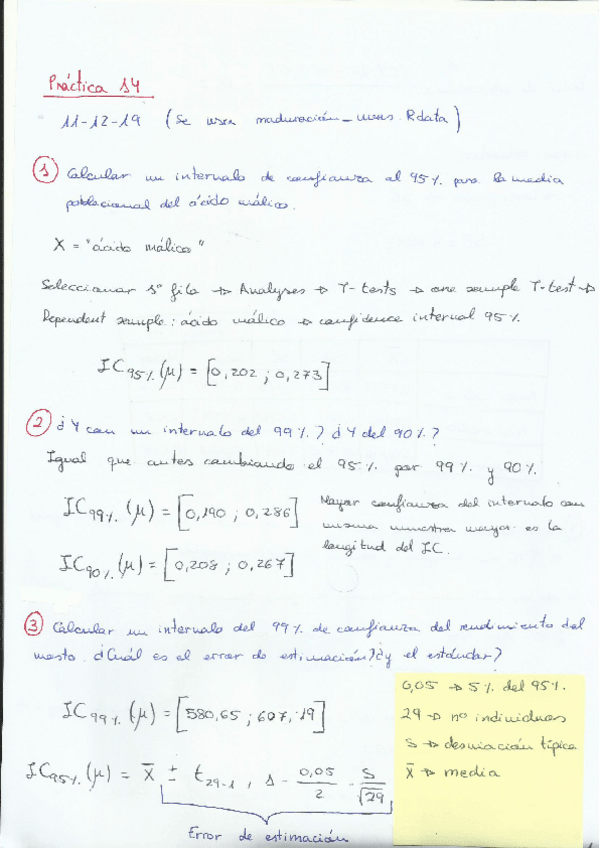 Práctica 14
11-12-19 (Se usa maduración_uvas.Rdata)
1 Calcular un intervalo de confianza al 95%. para la media
poblacional del ácido málico.
X = "ácido málico"
Seleccionar 1º fila → Analyses → T-tests → one sample T-test →
Dependent sample: ácido málico → confidence interval 95%.
IC95%.(μ) = [0,202 ; 0,273]
2 ¿Y con un intervalo del 99%.? ¿Y del 90%.?
Igual que antes cambiando el 95%. por 99%. y 90%.
IC99%.(μ) = [0,190 ; 0,286]
Mayor confianza del intervalo con
misma muestra mayor es la
longitud del IC.
IC90%.(μ) = [0,208 ; 0,267]
3 Calcular un intervalo del 99%. de confianza del rendimiento del
mosto. ¿Cuál es el error de estimación? ¿y el estándar?
IC99%.(μ) = [580,65 ; 607,19]
IC95%.(μ) = x̄ ± t29-1, 1 - 0,05/2 · S/√29
Error de estimación
0,05 → 5%. del 95%.
29 → nº individuos
S → desviación típica
x̄ → media